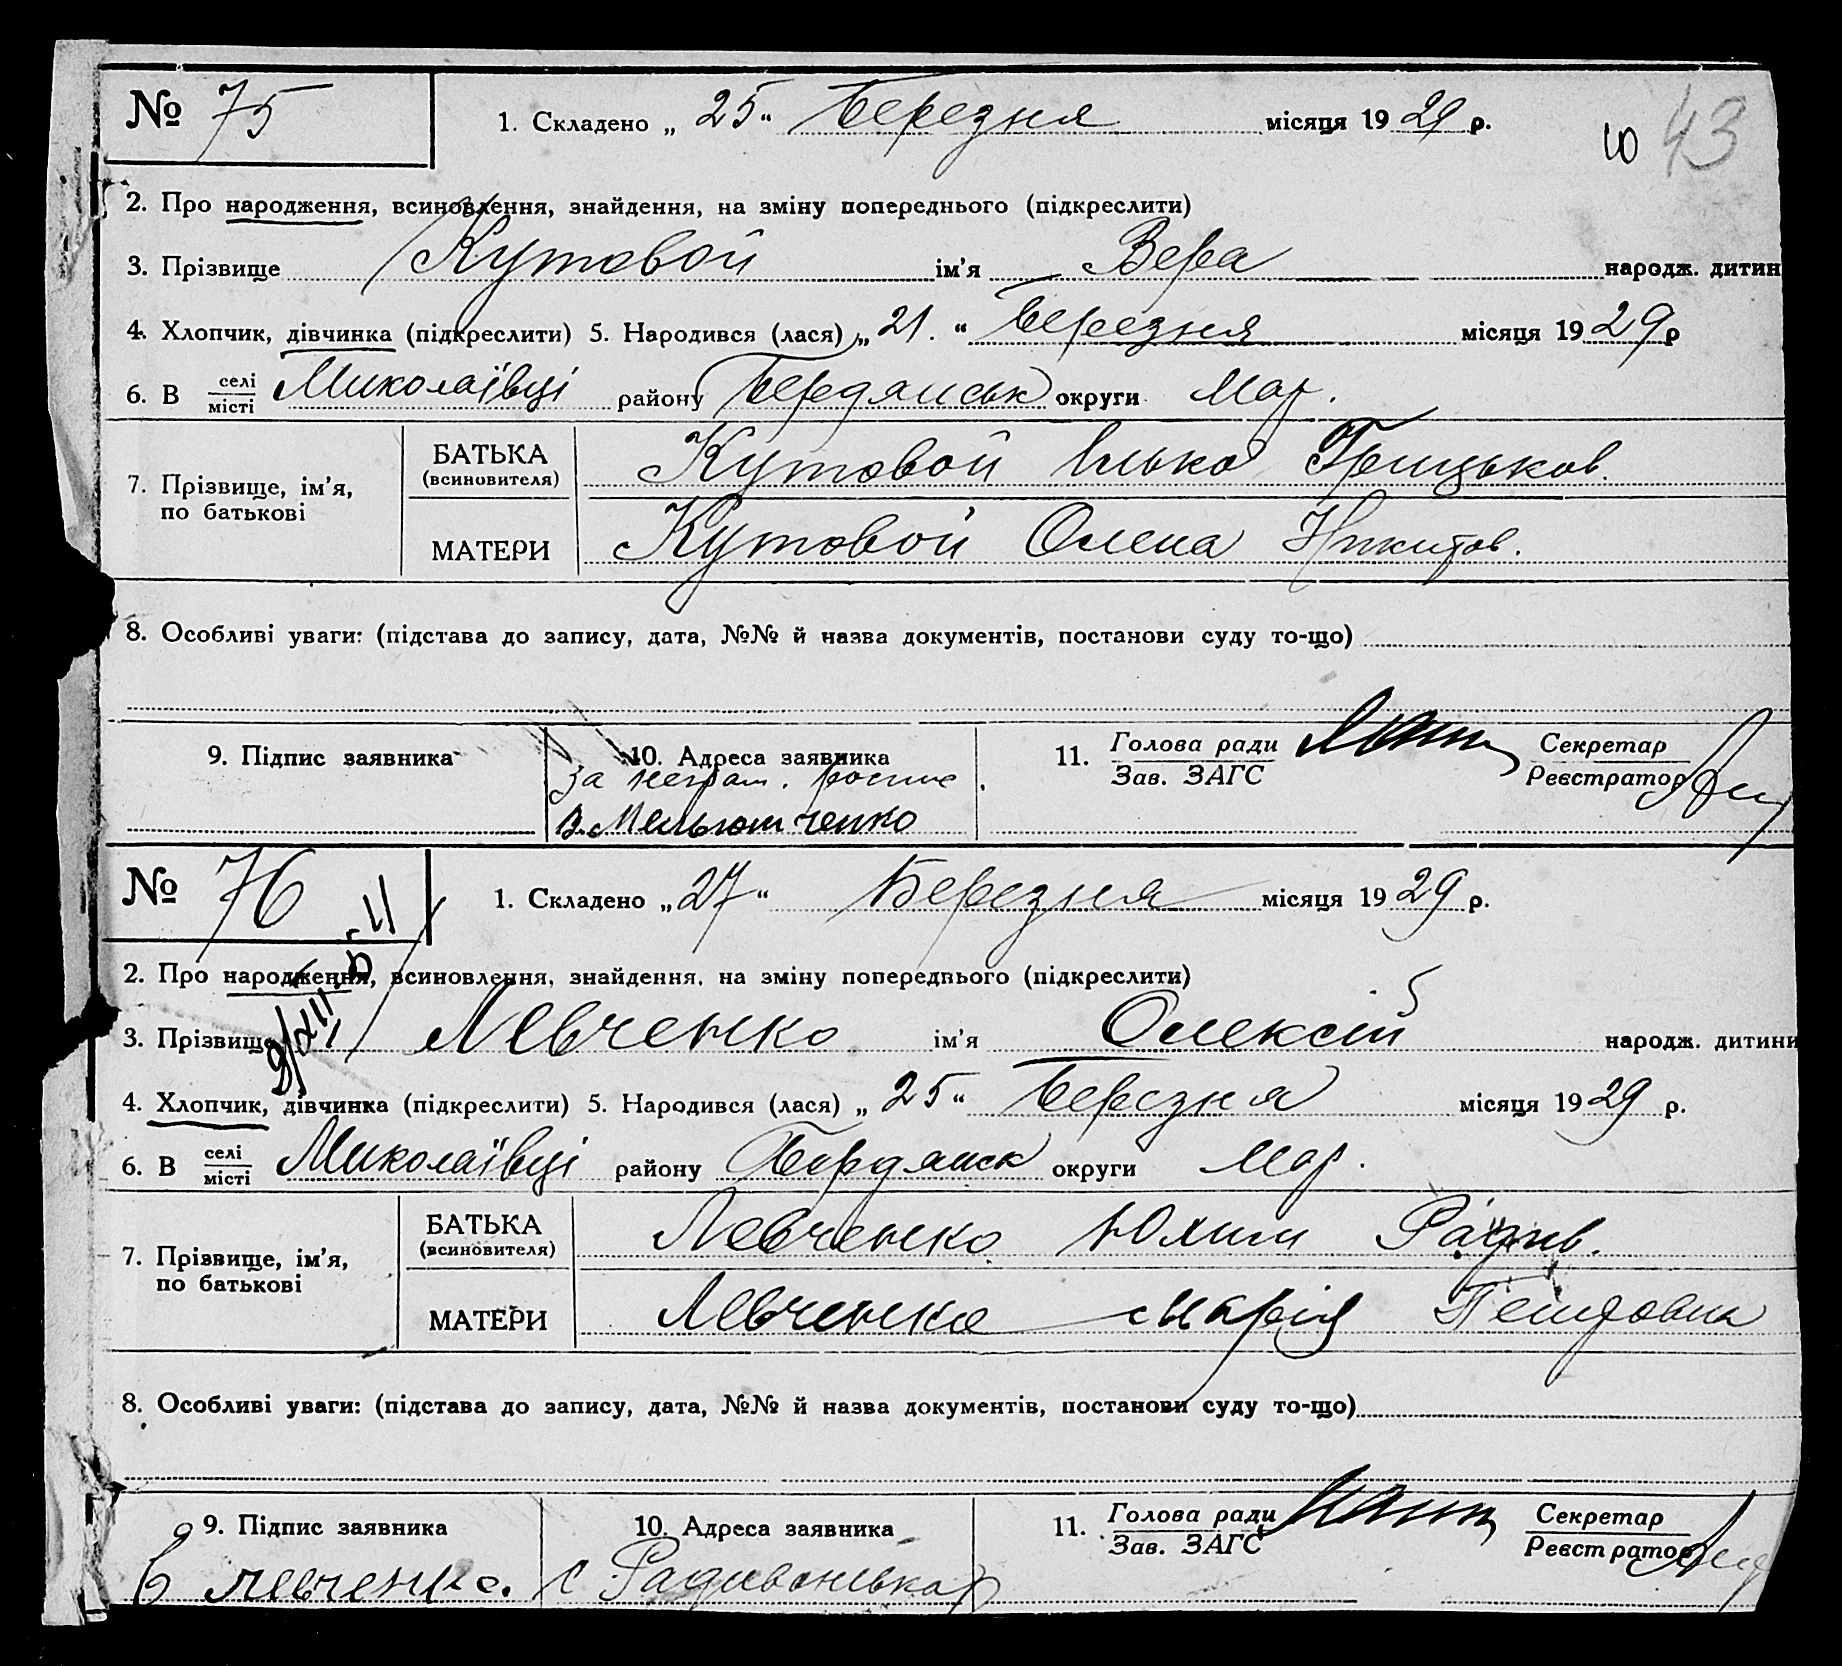 № 75
1. Складено „ 25 “ Березня місяця 1929 р.
ю 43
2. Про народження, всиновлення, знайдення, на зміну попереднього (підкреслити)
3. Прізвище Кутовой ім'я Вера народж. дитин
4. Хлопчик, дівчинка (підкреслити) 5. Народився (лася) „ 21. “ Березня місяця 1929 р
6. В селі місті Миколаївці району Бердянськ округи Мар.
7. Прізвище, ім'я, по батькові
БАТЬКА (всиновителя) Кутовой Ілько Грицьков.
МАТЕРИ Кутовой Олена Никитов.
8. Особливі уваги: (підстава до запису, дата, №№ й назва документів, постанови суду то-що)
9. Підпис заявника 10. Адреса заявника 11. Голова ради Зав. ЗАГС Секретар Реєстратор
за неграм.
В. Мельютченко
№ 76
1. Складено „ 27 “ Березня місяця 1929 р.
2. Про народження, всиновлення, знайдення, на зміну попереднього (підкреслити)
3. Прізвище Левченко ім'я Олексій народж. дитини
4. Хлопчик, дівчинка (підкреслити) 5. Народився (лася) „ 25 “ Березня місяця 1929 р.
6. В селі місті Миколаївці району Бердянск округи Мар.
7. Прізвище, ім'я, по батькові
БАТЬКА (всиновителя) Левченко Юхим
МАТЕРИ Левченко Марія
8. Особливі уваги: (підстава до запису, дата, №№ й назва документів, постанови суду то-що)
9. Підпис заявника 10. Адреса заявника 11. Голова ради Зав. ЗАГС Секретар Реєстратор
Левченко. с